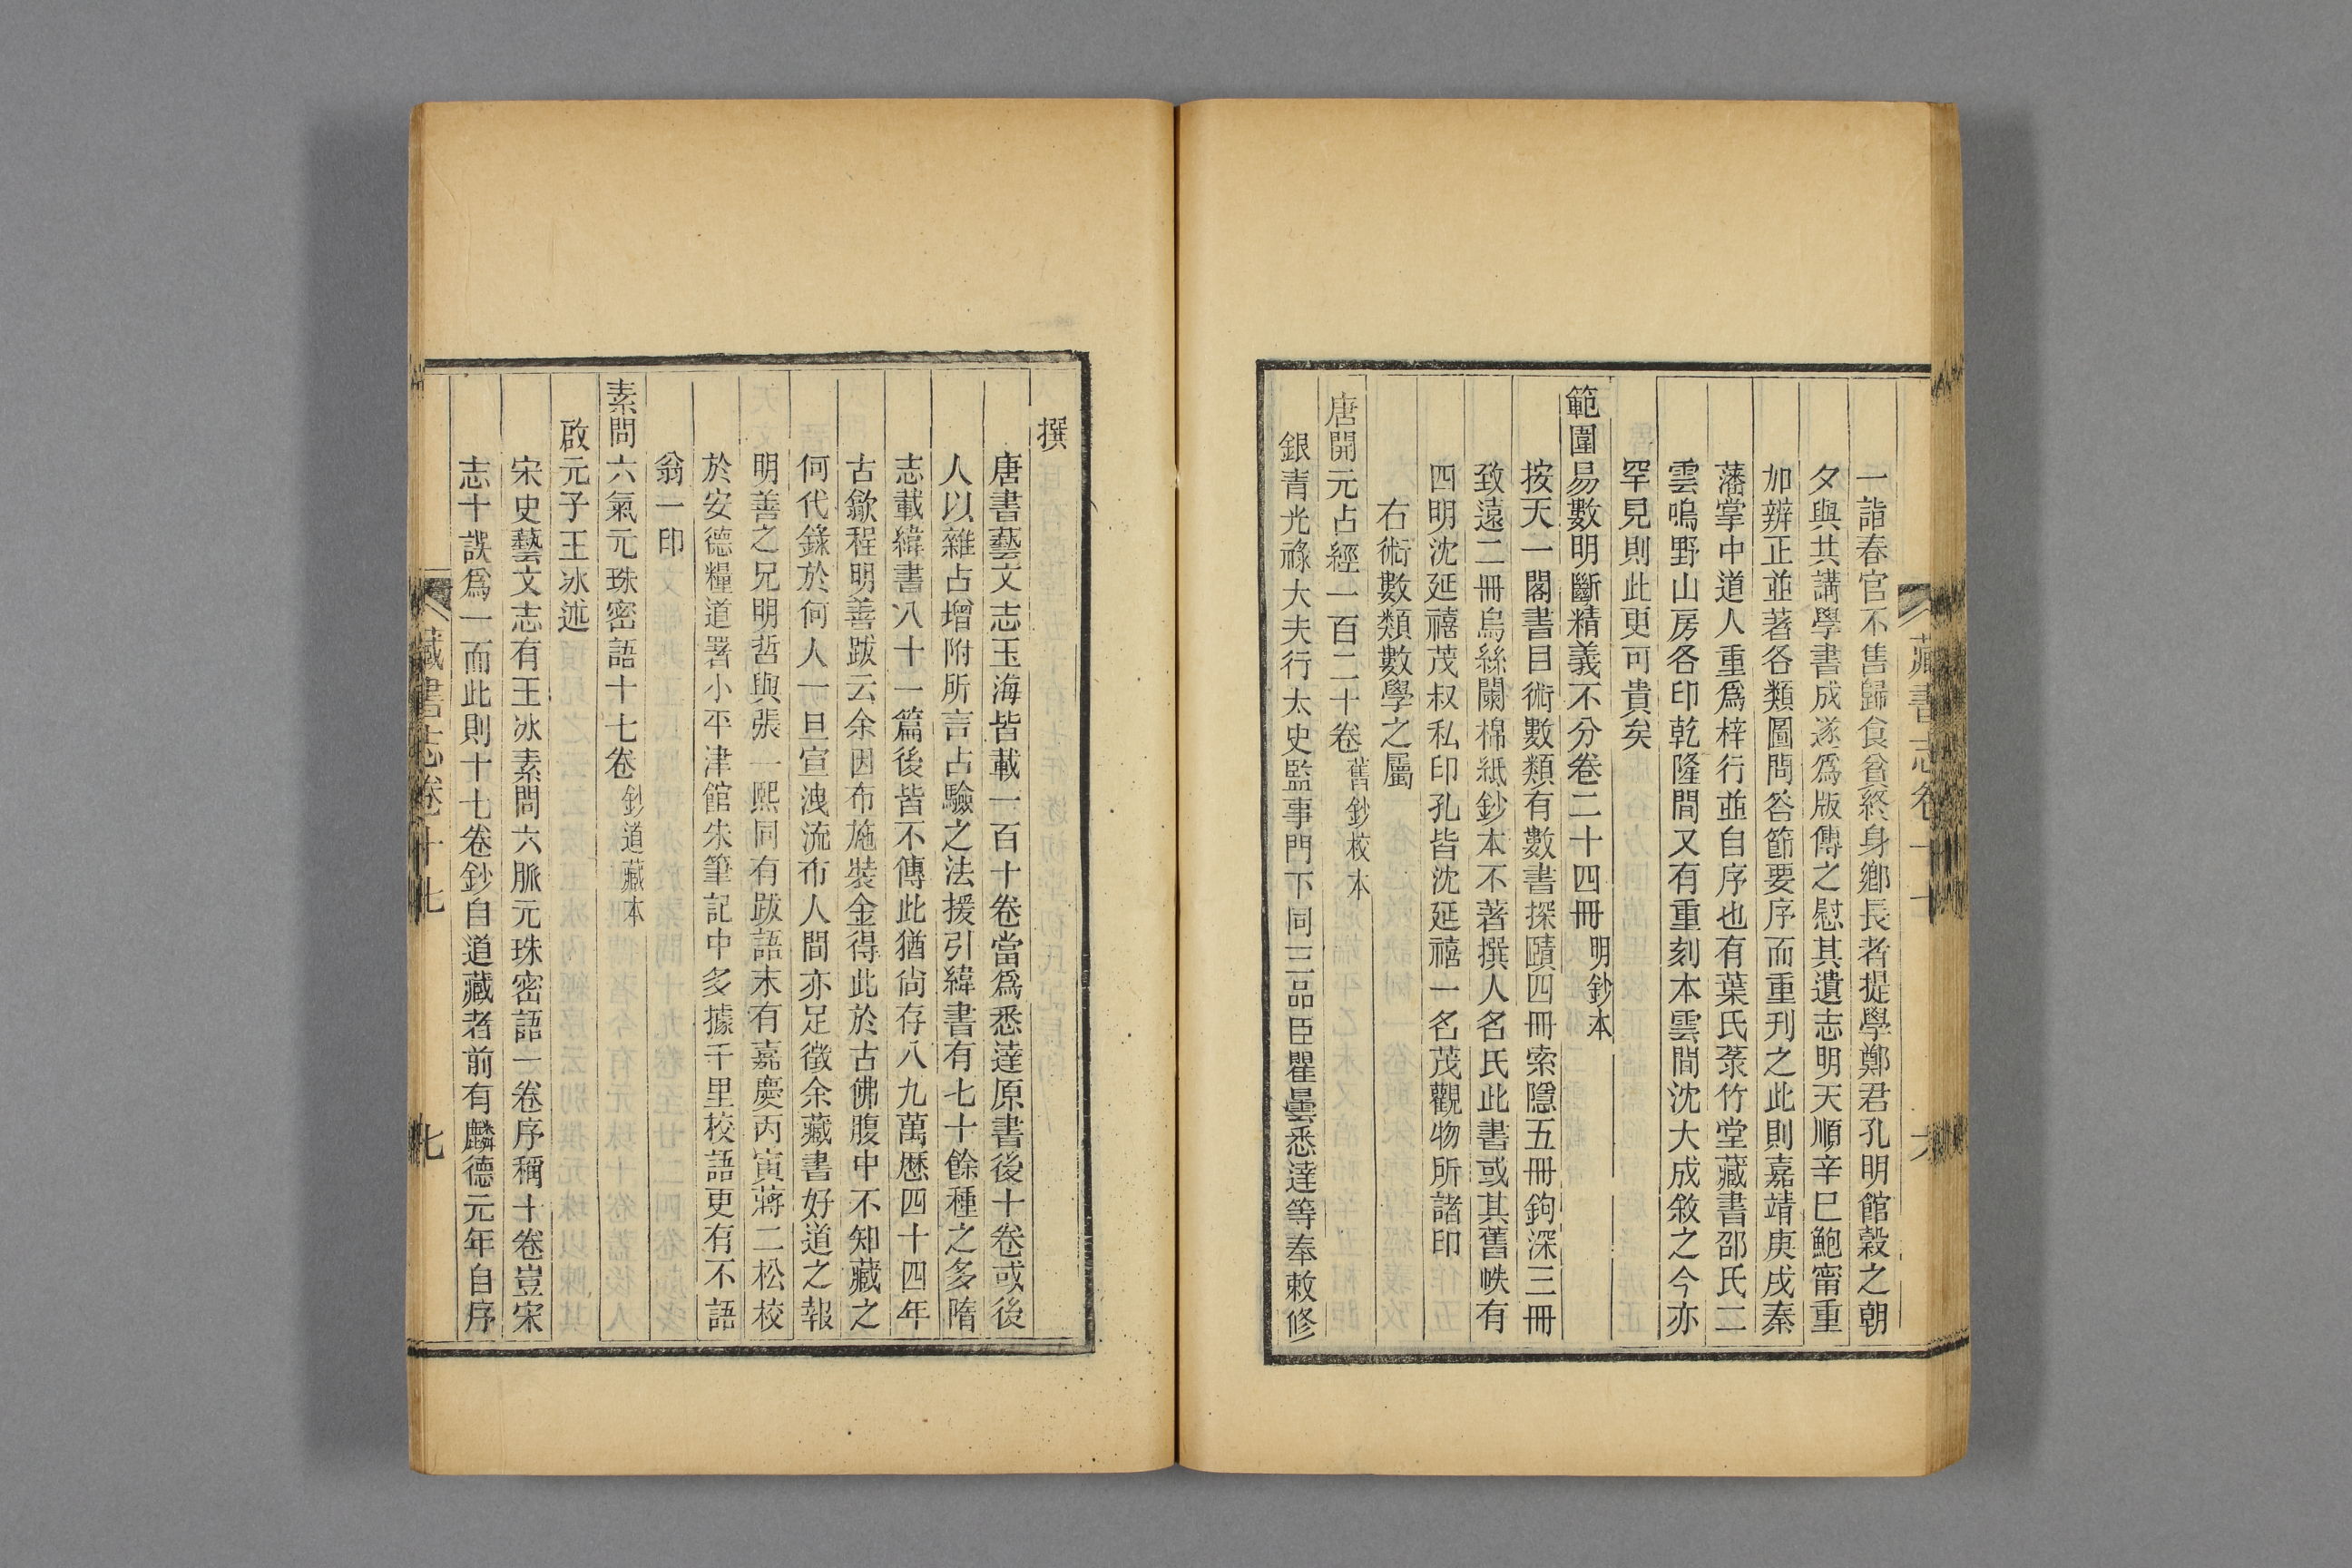 一詣春官不售歸食貧終身鄉長者提學鄭君孔明館穀之朝
夕與共講學書成遂爲版傳之慰其遺志明天順辛巳鮑甯重
加辨正並著各類圖問答節要序而重刊之此則嘉靖庚戌秦
藩掌中道人重爲梓行並自序也有葉氏菉竹堂藏書邵氏二
雲嗚野山房各印乾隆間又有重刻本雲間沈大成敘之今亦
罕見則此更可貴矣
範圍易數明斷精義不分卷二十四冊明鈔本
按天一閣書目術數類有數書探賾四冊索隱五冊鉤深三冊
致遠二冊烏絲闌棉紙鈔本不著撰人名氏此書或其舊帙有
四明沈延禧茂叔私印孔皆沈延禧一名茂觀物所諸印
右術數類數學之屬
唐開元占經一百二十卷舊鈔校本
銀青光祿大夫行太史監事門下同三品臣瞿曇悉達等奉敕修
藏書志卷十七
六
撰
唐書藝文志玉海皆載一百十卷當爲悉達原書後十卷或後
人以雜占增附所言占驗之法援引緯書有七十餘種之多隋
志載緯書八十一篇後皆不傳此猶尙存八九萬歷四十四年
古歙程明善跋云余因布施裝金得此於古佛腹中不知藏之
何代錄於何人一旦宣洩流布人間亦足徵余藏書好道之報
明善之兄明哲與張一熙同有跋語末有嘉慶丙寅蔣二松校
於安德糧道署小平津館朱筆記中多據千里校語更有不語
翁一印
素問六氣元珠密語十七卷鈔道藏本
啟元子王冰述
宋史藝文志有王冰素問六脈元珠密語一卷序稱十卷豈宋
志十誤爲一而此則十七卷鈔自道藏者前有麟德元年自序
藏書志卷十七
七